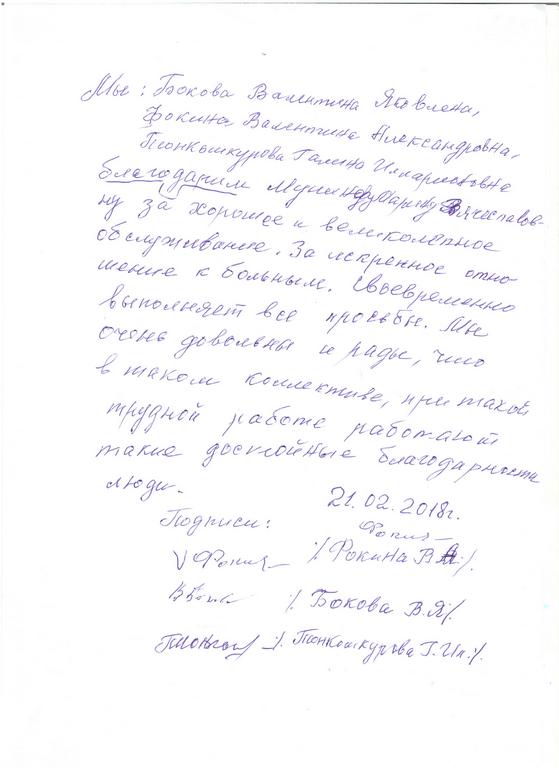 Мы: Бокова Валентина Яковлена,
Фокина Валентина Александровна,
Тонкошкурова Галина
благодарим Вячеславов-
ну за хорошое и великолепное
обслуживание. За искренное отно-
шение к больным. Своевременно
выполняет все просьбы. Мы
очень довольны и рады, что
в таком коллективе, при такой
трудной работе работают
такие достойные благодарности
люди.
21.02.2018г.
Подписи:
V ./. Фокина В.А./.
./. Бокова В.Я./.
./. Тонкошкурова Г.Ил./.